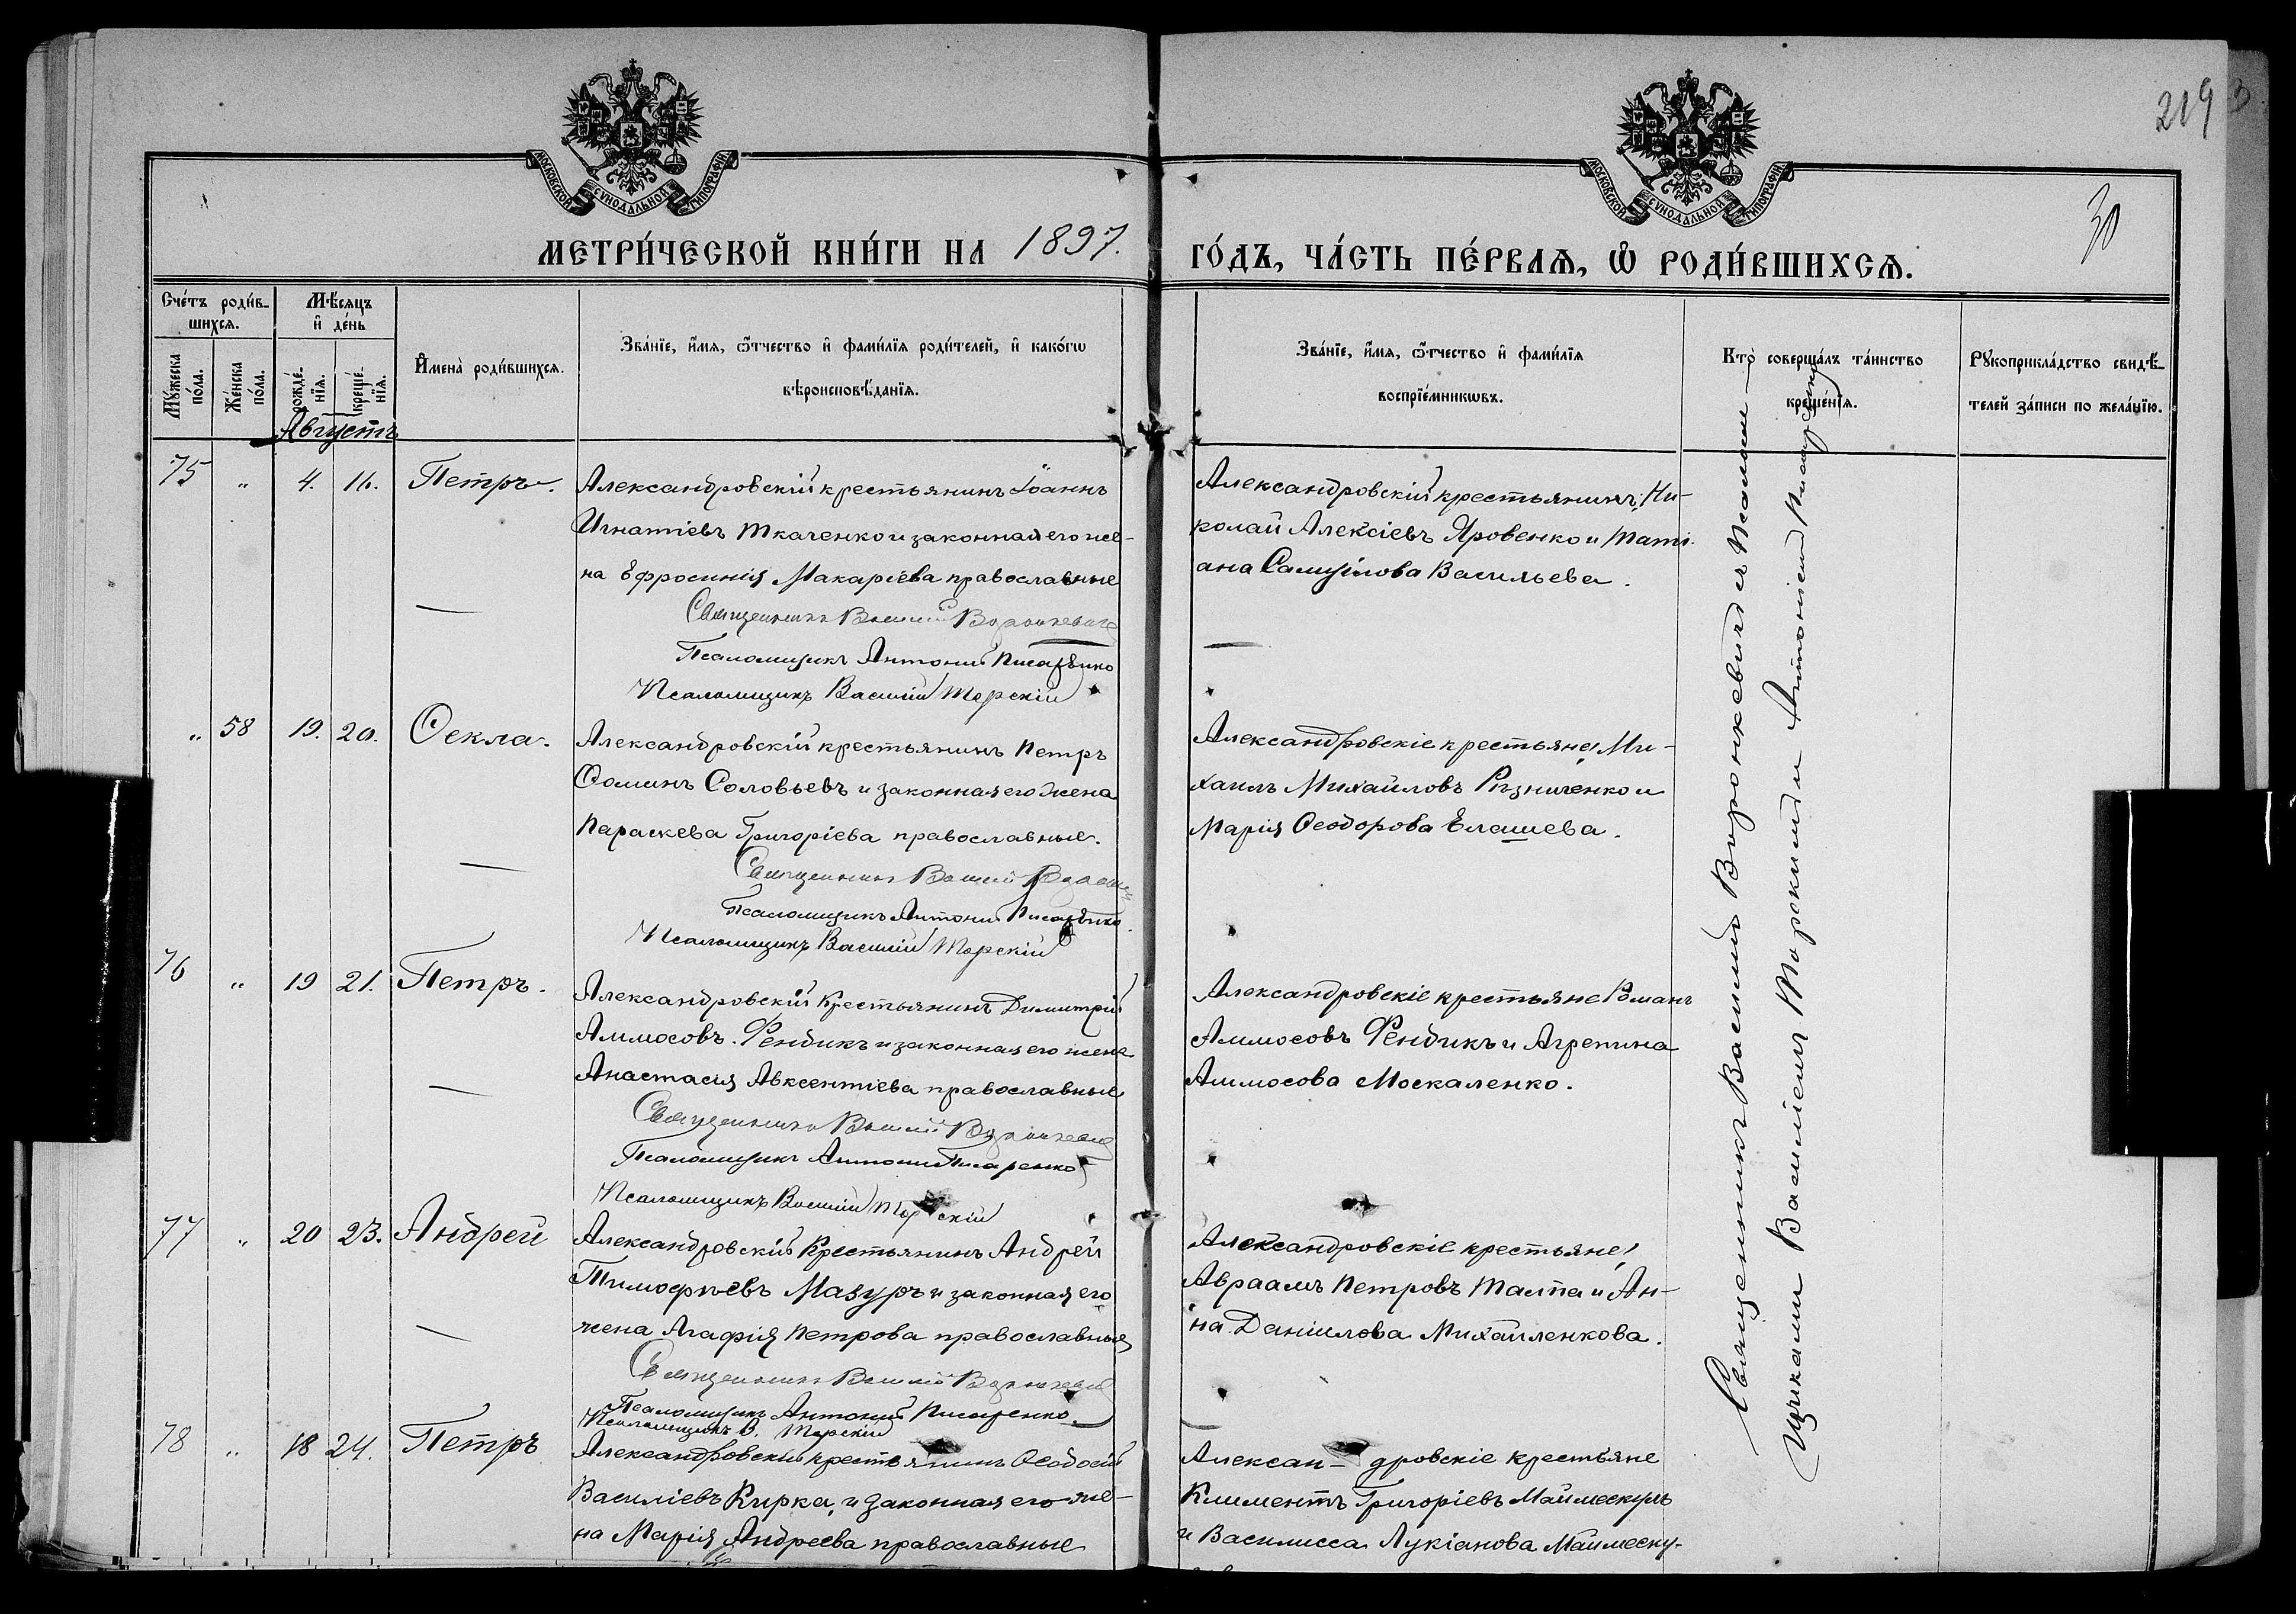 219
30
МОСКОВСКОЙ СѴНОДАЛЬНОЙ ТИПОГРАФІИ
МОСКОВСКОЙ СѴНОДАЛЬНОЙ ТИПОГРАФІИ
МЕТРИ́ЧЕСКОЙ КНИ́ГИ НА 1897. ГО́ДЪ, ЧА́СТЬ ПЕ́РВАѦ, Ѡ РОДИ́ВШИХСѦ.
Сче́тъ роди́в-
шихсѧ.
Мꙋ́жеска по́ла.
Же́нска по́ла.
Мѣ́сѧцъ
и҆ де́нь
рожде́-
нїѧ.
креще́-
нїѧ.
И҆мена̀ роди́вшихсѧ.
Зва́нїе, и҆́мѧ, ѻ҆́тчество и҆ фами́лїѧ роди́телей, и҆ како́гѡ
вѣроисповѣ́данїѧ.
Зва́нїе, и҆́мѧ, ѻ҆́тчество и҆ фами́лїѧ
воспрїе́мникѡвъ.
Кто̀ соверша́лъ та́инство
креще́нїѧ.
Рꙋкоприкла́дство свидѣ́-
телей за́писи по жела́нїю.
Августъ
75 „ 4. 16. Петръ.
Александровскій крестьянинъ Іоаннъ
Игнатіевъ Ткаченко и законная его же-
на Ефросинія Макаріева православные
Священникъ Василій Воронкевичъ
Псаломщикъ Антоній Писаренко
Псаломщикъ Василій Торскій
Александровскій крестьянинъ, Ни-
колай Алексіевъ Яровенко и Тати-
ана Самуілова Васильева.
„ 58 19. 20. Ѳекла.
Александровскій крестьянинъ Петръ
Ѳоминъ Соловьевъ и законная его жена
Параскева Григоріева православные.
Священникъ Василій
Псаломщикъ Антоній Писаренко.
Псаломщикъ Василій Торскій
Александровскіе крестьяне, Ми-
хаилъ Михайловъ Ризниченко и
Марія Ѳеодорова Елашева.
76 „ 19 21. Петръ.
Александровскій Крестьянинъ Димитрій
Аммосовъ Фендикъ и законная его жена
Анастасія Авксентіева православные
Священникъ Василій Воронкевичъ
Псаломщикъ Антоній Писаренко
Псаломщикъ Василій Торскій
Александровскіе крестьяне Романъ
Аммосовъ Фендикъ и Агрепина
Аммосова Москаленко.
77 „ 20 23. Андрей
Александровскій Крестьянинъ Андрей
Тимофѣевъ Мазуръ и законная его
жена Агафія Петрова православные
Священникъ Василій Воронкевичъ
Псаломщикъ Антоній Писаренко.
Псаломщикъ В. Торскій
Александровскіе крестьяне,
Авраамъ Петровъ Талпа и Ан-
на Даніилова Михайленкова.
78 „ 18 24. Петръ
Александровскій крестьянинъ Ѳеодосій
Василіевъ Кирка, и законная его же-
на Марія Андреева православные
Алексан- дровскіе крестьяне
Климентъ Григоріевъ Маймескулъ
и Василисса Лукіанова Маймеску-
Священникъ Василій Воронкевичъ съ Псалом-
щиками Василіемъ Торскимъ и Антоніемъ Писаренко